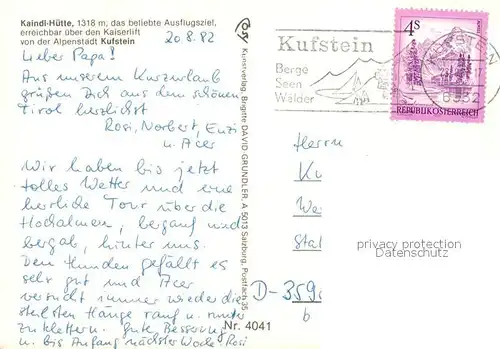 Kaindl-Hütte, 1318 m, das beliebte Ausflugsziel,
erreichbar über den Kaiserlift
von der Alpenstadt Kufstein
20.8.82
Lieber Papa!
Aus unserem Kurzurlaub
grüßen Dich aus dem schönen
Tirol herzlichst
Rosi, Norbert, Enzi
u. Acer
Wir haben bis jetzt
tolles Wetter und eine
herrliche Tour über die
Hochalmen, bergauf und
bergab, hinter uns.
Den Hunden gefällt es
sehr gut und Acer
versucht immer wieder die
steilsten Hänge rauf u. runter
zu klettern. Gute Besserung
u. bis Anfang nächster Woche Rosi
Kunstverlag, Brigitte DAVID-GRUNDLER, A 5013 Salzburg, Postfach 35
Nr. 4041
Kufstein
Berge
Seen
Wälder
KUFSTEIN
6332
4S
REPUBLIK ÖSTERREICH
Herrn
D-359
b
privatsammlung
Datenschutz